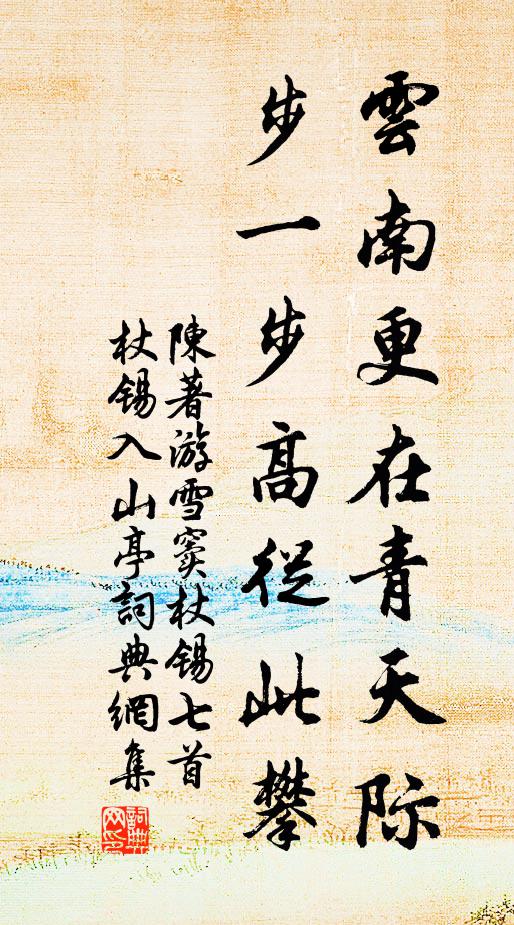 雲南更在青天际
步一步高從此攀
陳著游雪窦杖锡七首
杖锡入山亭詞典網集
詞典网印